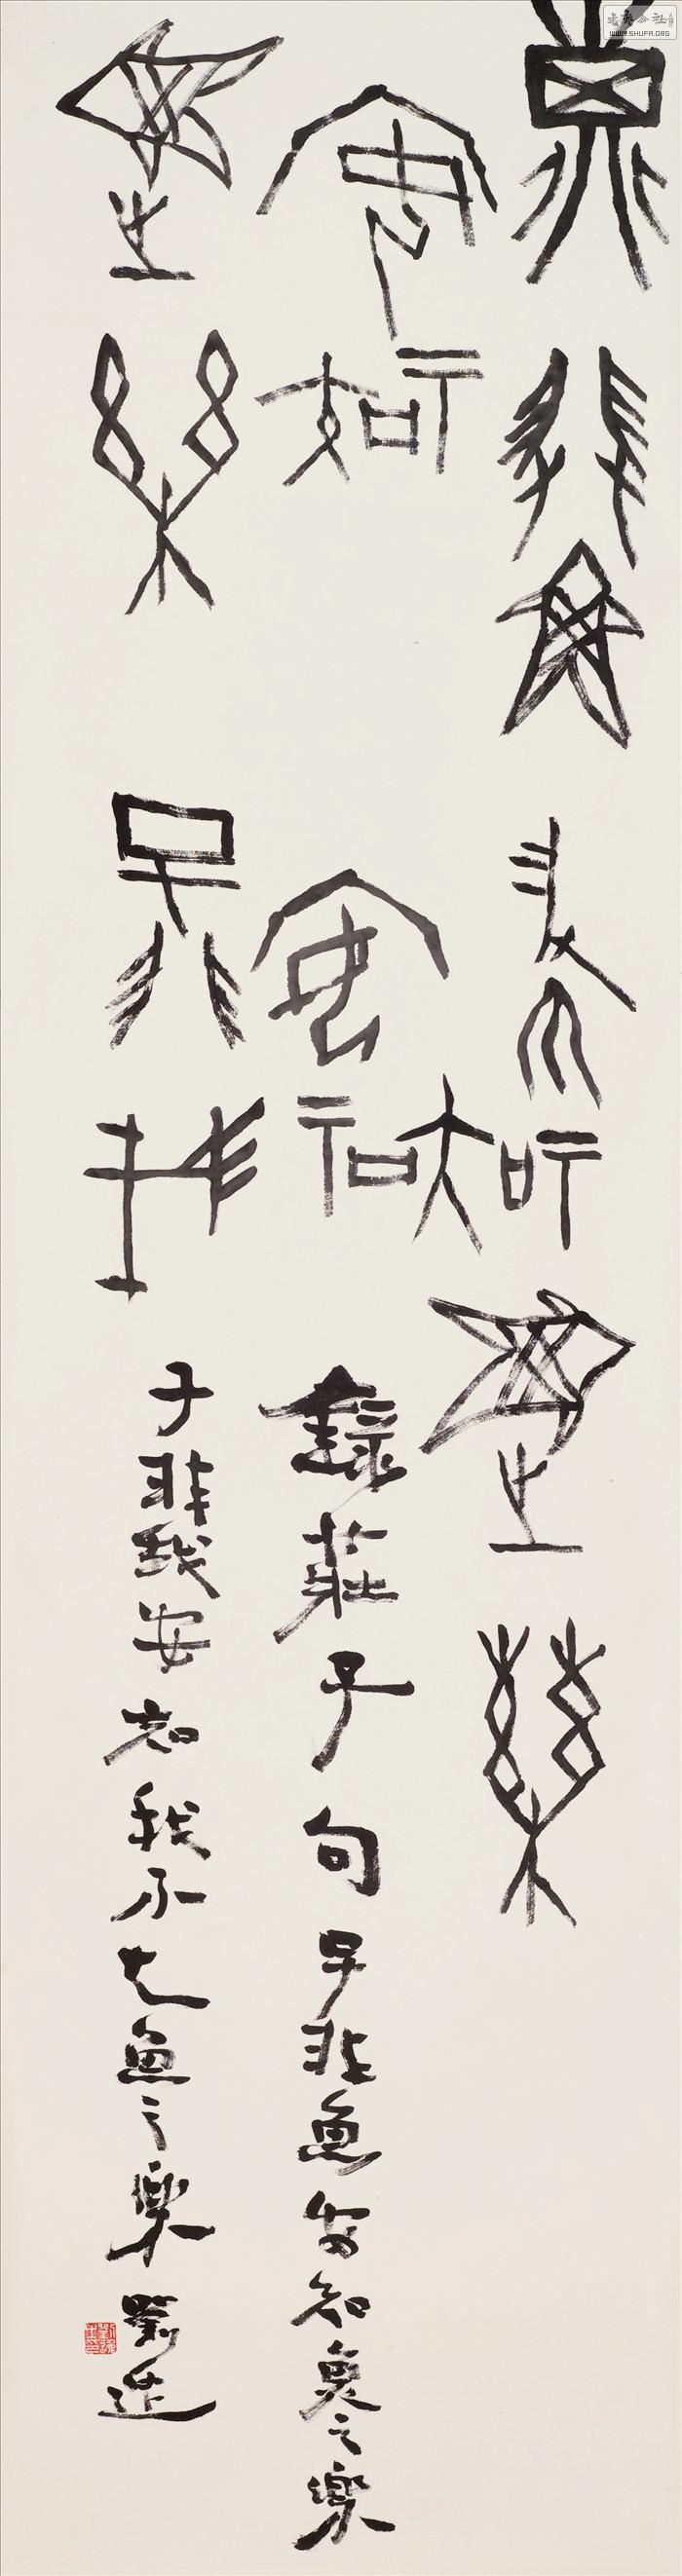 子非魚
安知
魚之樂
子非我
安知
我不知魚之樂
錄莊子句子非魚安知魚之樂
子非我安知我不魚之樂 劉
书法公社
WWW.SHUFA.ORG